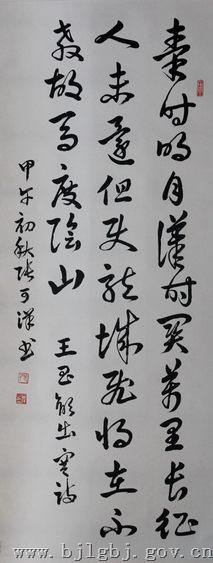 秦时明月汉时关万里长征
人未还但使龙城飞将在不
教胡马度阴山 王昌龄出塞诗
甲午初秋张可漢书
www.bjlgbj.gov.cn